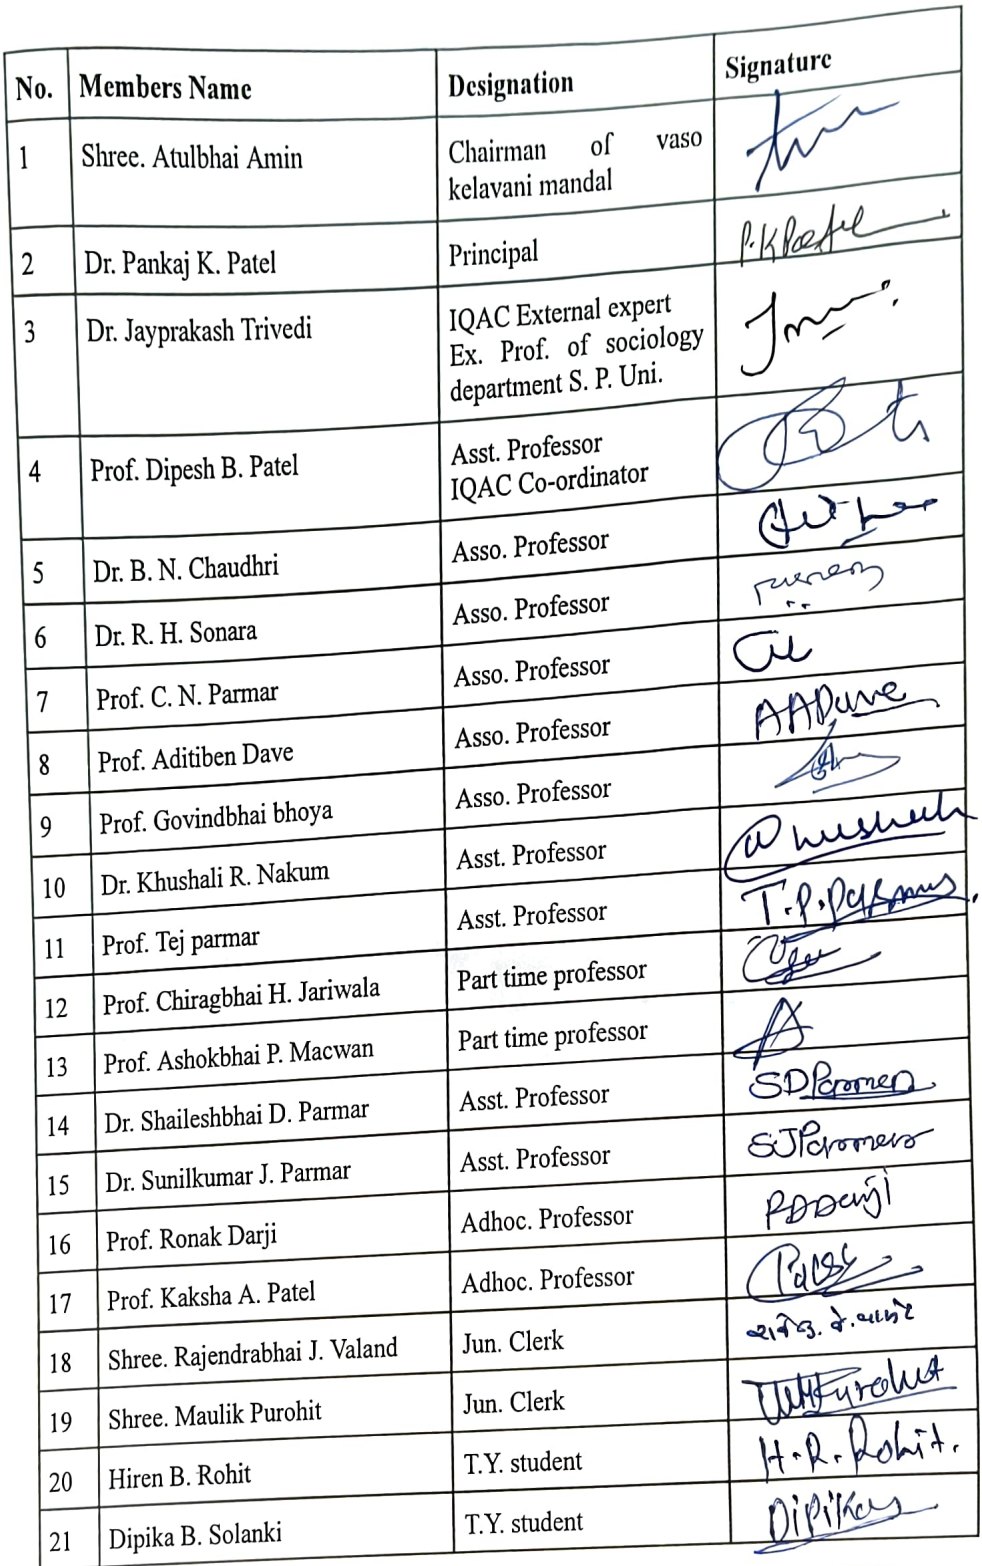 No. Members Name Designation Signature
1 Shree. Atulbhai Amin Chairman of vaso
kelavani mandal
2 Dr. Pankaj K. Patel Principal P.K Patel
3 Dr. Jayprakash Trivedi IQAC External expert
Ex. Prof. of sociology
department S. P. Uni.
4 Prof. Dipesh B. Patel Asst. Professor
IQAC Co-ordinator
5 Dr. B. N. Chaudhri Asso. Professor
6 Dr. R. H. Sonara Asso. Professor
7 Prof. C. N. Parmar Asso. Professor
8 Prof. Aditiben Dave Asso. Professor AADave
9 Prof. Govindbhai bhoya Asso. Professor
10 Dr. Khushali R. Nakum Asst. Professor
11 Prof. Tej parmar Asst. Professor T.P.Parmar
12 Prof. Chiragbhai H. Jariwala Part time professor
13 Prof. Ashokbhai P. Macwan Part time professor
14 Dr. Shaileshbhai D. Parmar Asst. Professor SDParmar
15 Dr. Sunilkumar J. Parmar Asst. Professor SJParmar
16 Prof. Ronak Darji Adhoc. Professor
17 Prof. Kaksha A. Patel Adhoc. Professor
18 Shree. Rajendrabhai J. Valand Jun. Clerk
19 Shree. Maulik Purohit Jun. Clerk
20 Hiren B. Rohit T.Y. student H.R. Rohit.
21 Dipika B. Solanki T.Y. student